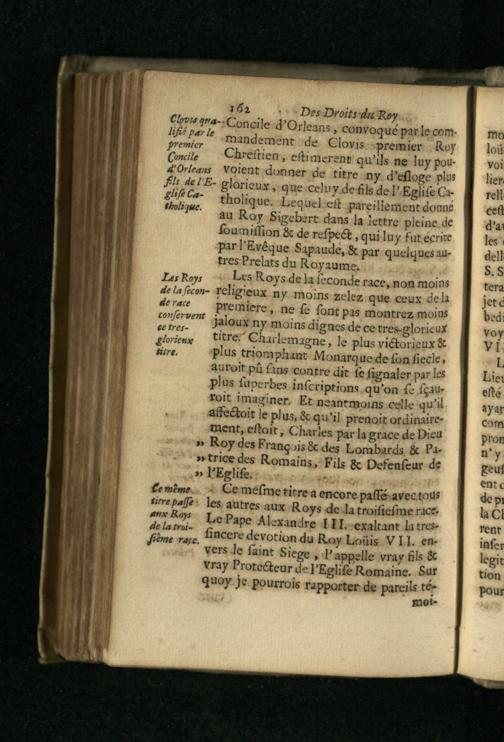 162 Des Droits du Roy
Clovis qua-
lifié par le
premier
Concile
d'Orleans
fils de l'E-
glise Ca-
tholique.
Concile d'Orleans, convoqué par le com-
mandement de Clovis premier Roy
Chrestien, estimerent qu'ils ne luy pou-
voient donner de titre ny d'esloge plus
glorieux, que celuy de fils de l'Eglise Ca-
tholique. Lequel est pareillement donné
au Roy Sigebert dans la lettre pleine de
soumission & de respect, qui luy fut écrite
par l'Evêque Sapaude, & par quelques au-
tres Prelats du Royaume.
Les Roys
de la secon-
de race
conservent
ce tres-
glorieux
titre.
Les Roys de la seconde race, non moins
religieux ny moins zelez que ceux de la
premiere, ne se sont pas montrez moins
jaloux ny moins dignes de ce tres-glorieux
titre. Charlemagne, le plus victorieux &
plus triomphant Monarque de son siecle,
auroit pû sans contre dit se signaler par les
plus superbes inscriptions qu'on se sçau-
roit imaginer. Et neantmoins celle qu'il
affectoit le plus, & qu'il prenoit ordinaire-
ment, estoit, Charles par la grace de Dieu
„ Roy des François & des Lombards & Pa-
„ trice des Romains, Fils & Defenseur de
„ l'Eglise.
Ce même
titre passe
aux Roys
de la troi-
sième race.
Ce mesme titre a encore passé avec tous
les autres aux Roys de la troisiesme race.
Le Pape Alexandre III. exaltant la tres-
sincere devotion du Roy Loüis VII. en-
vers le saint Siege, l'appelle vray fils &
vray Protecteur de l'Eglise Romaine. Sur
quoy je pourrois rapporter de pareils té-
moi-